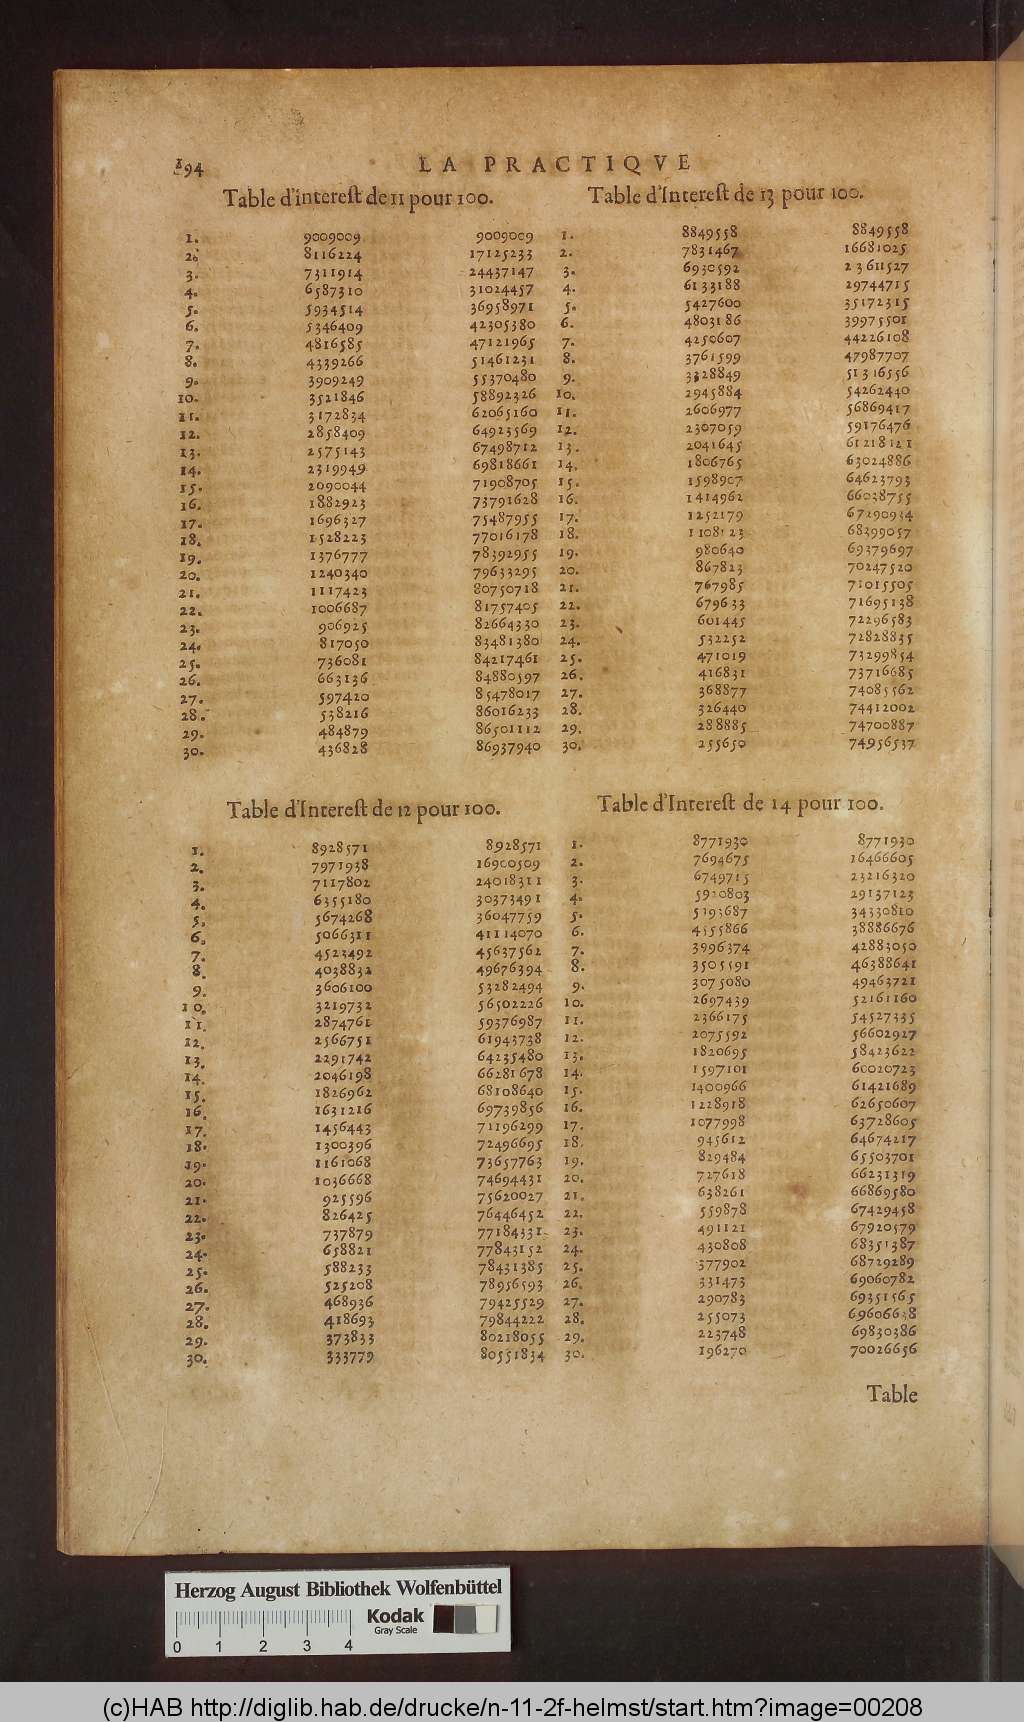 194
LA PRACTIQVE
Table d'intereſt de 11 pour 100.
1. 9009009 9009009
2. 8116224 17125233
3. 7311914 24437147
4. 6587310 31024457
5. 5934514 36958971
6. 5346409 42305380
7. 4816585 47121965
8. 4339266 51461231
9. 3909249 55370480
10. 3521846 58892326
11. 3172834 62065160
12. 2858409 64923569
13. 2575143 67498712
14. 2319949 69818661
15. 2090044 71908705
16. 1882923 73791628
17. 1696327 75487955
18. 1528223 77016178
19. 1376777 78392955
20. 1240340 79633295
21. 1117423 80750718
22. 1006687 81757405
23. 906925 82664330
24. 817050 83481380
25. 736081 84217461
26. 663136 84880597
27. 597420 85478017
28. 538216 86016233
29. 484879 86501112
30. 436828 86937940
Table d'Intereſt de 13 pour 100.
1. 8849558 8849558
2. 7831467 16681025
3. 6930592 23611527
4. 6133188 29744715
5. 5427600 35172315
6. 4803186 39975501
7. 4250607 44226108
8. 3761599 47987707
9. 3328849 51316556
10. 2945884 54262440
11. 2606977 56869417
12. 2307059 59176476
13. 2041645 61218121
14. 1806765 63024886
15. 1598907 64623793
16. 1414962 66038755
17. 1252179 67290934
18. 1108123 68399057
19. 980640 69379697
20. 867823 70247520
21. 767985 71015505
22. 679633 71695138
23. 601445 72296583
24. 532252 72828835
25. 471019 73299854
26. 416831 73716685
27. 368877 74085562
28. 326440 74412002
29. 288885 74700887
30. 255650 74956537
Table d'Intereſt de 12 pour 100.
1. 8928571 8928571
2. 7971938 16900509
3. 7117802 24018311
4. 6355180 30373491
5. 5674268 36047759
6. 5066311 41114070
7. 4523492 45637562
8. 4038832 49676394
9. 3606100 53282494
10. 3219732 56502226
11. 2874761 59376987
12. 2566751 61943738
13. 2291742 64235480
14. 2046198 66281678
15. 1826962 68108640
16. 1631216 69739856
17. 1456443 71196299
18. 1300396 72496695
19. 1161068 73657763
20. 1036668 74694431
21. 925596 75620027
22. 826425 76446452
23. 737879 77184331
24. 658821 77843152
25. 588233 78431385
26. 525208 78956593
27. 468936 79425529
28. 418693 79844222
29. 373833 80218055
30. 333779 80551834
Table d'Intereſt de 14 pour 100.
1. 8771930 8771930
2. 7694675 16466605
3. 6749715 23216320
4. 5920803 29137123
5. 5193687 34330810
6. 4555866 38886676
7. 3996374 42883050
8. 3505591 46388641
9. 3075080 49463721
10. 2697439 52161160
11. 2366175 54527335
12. 2075592 56602927
13. 1820695 58423622
14. 1597101 60020723
15. 1400966 61421689
16. 1228918 62650607
17. 1077998 63728605
18. 945612 64674217
19. 829484 65503701
20. 727618 66231319
21. 638261 66869580
22. 559878 67429458
23. 491121 67920579
24. 430808 68351387
25. 377902 68729289
26. 331473 69060782
27. 290783 69351565
28. 255073 69606638
29. 223748 69830386
30. 196270 70026656
Table
Herzog August Bibliothek Wolfenbüttel
0 1 2 3 4
Kodak
Gray Scale
(c)HAB http://diglib.hab.de/drucke/n-11-2f-helmst/start.htm?image=00208